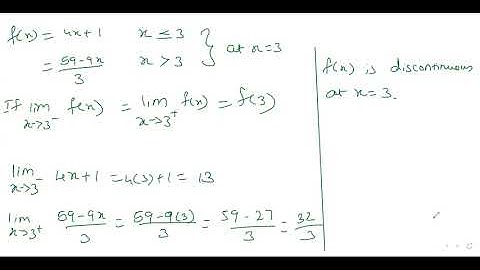 f(x) = 4x+1   x ≤ 3
= (59-9x)/3   x > 3 } at x=3
If lim x→3⁻ f(x) = lim x→3⁺ f(x) = f(3)
lim x→3⁻ 4x+1 = 4(3)+1 = 13
lim x→3⁺ (59-9x)/3 = (59-9(3))/3 = (59-27)/3 = 32/3
f(x) is discontinuous
at x=3.